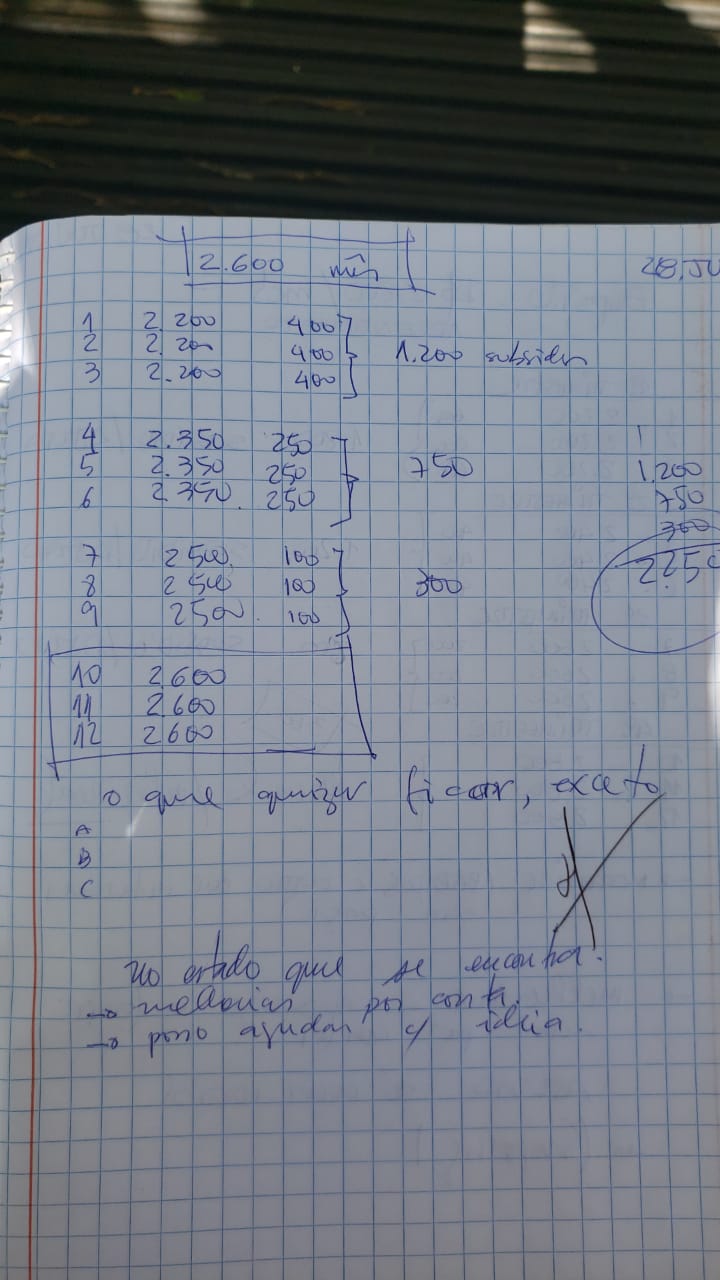 2.600 mês
28.JU
1 2.200 400
2 2.200 400 1.200 subsidio
3 2.200 400
4 2.350 250
5 2.350 250 750
6 2.350. 250
1.200
750
300
2.250
7 2500. 100
8 2500 100 300
9 2500. 100
10 2600
11 2600
12 2600
o que quizer ficar, exceto
A
B
C
No estado que se encontra.
→ melhorias por conta.
→ posso ajudar c/ ideia.